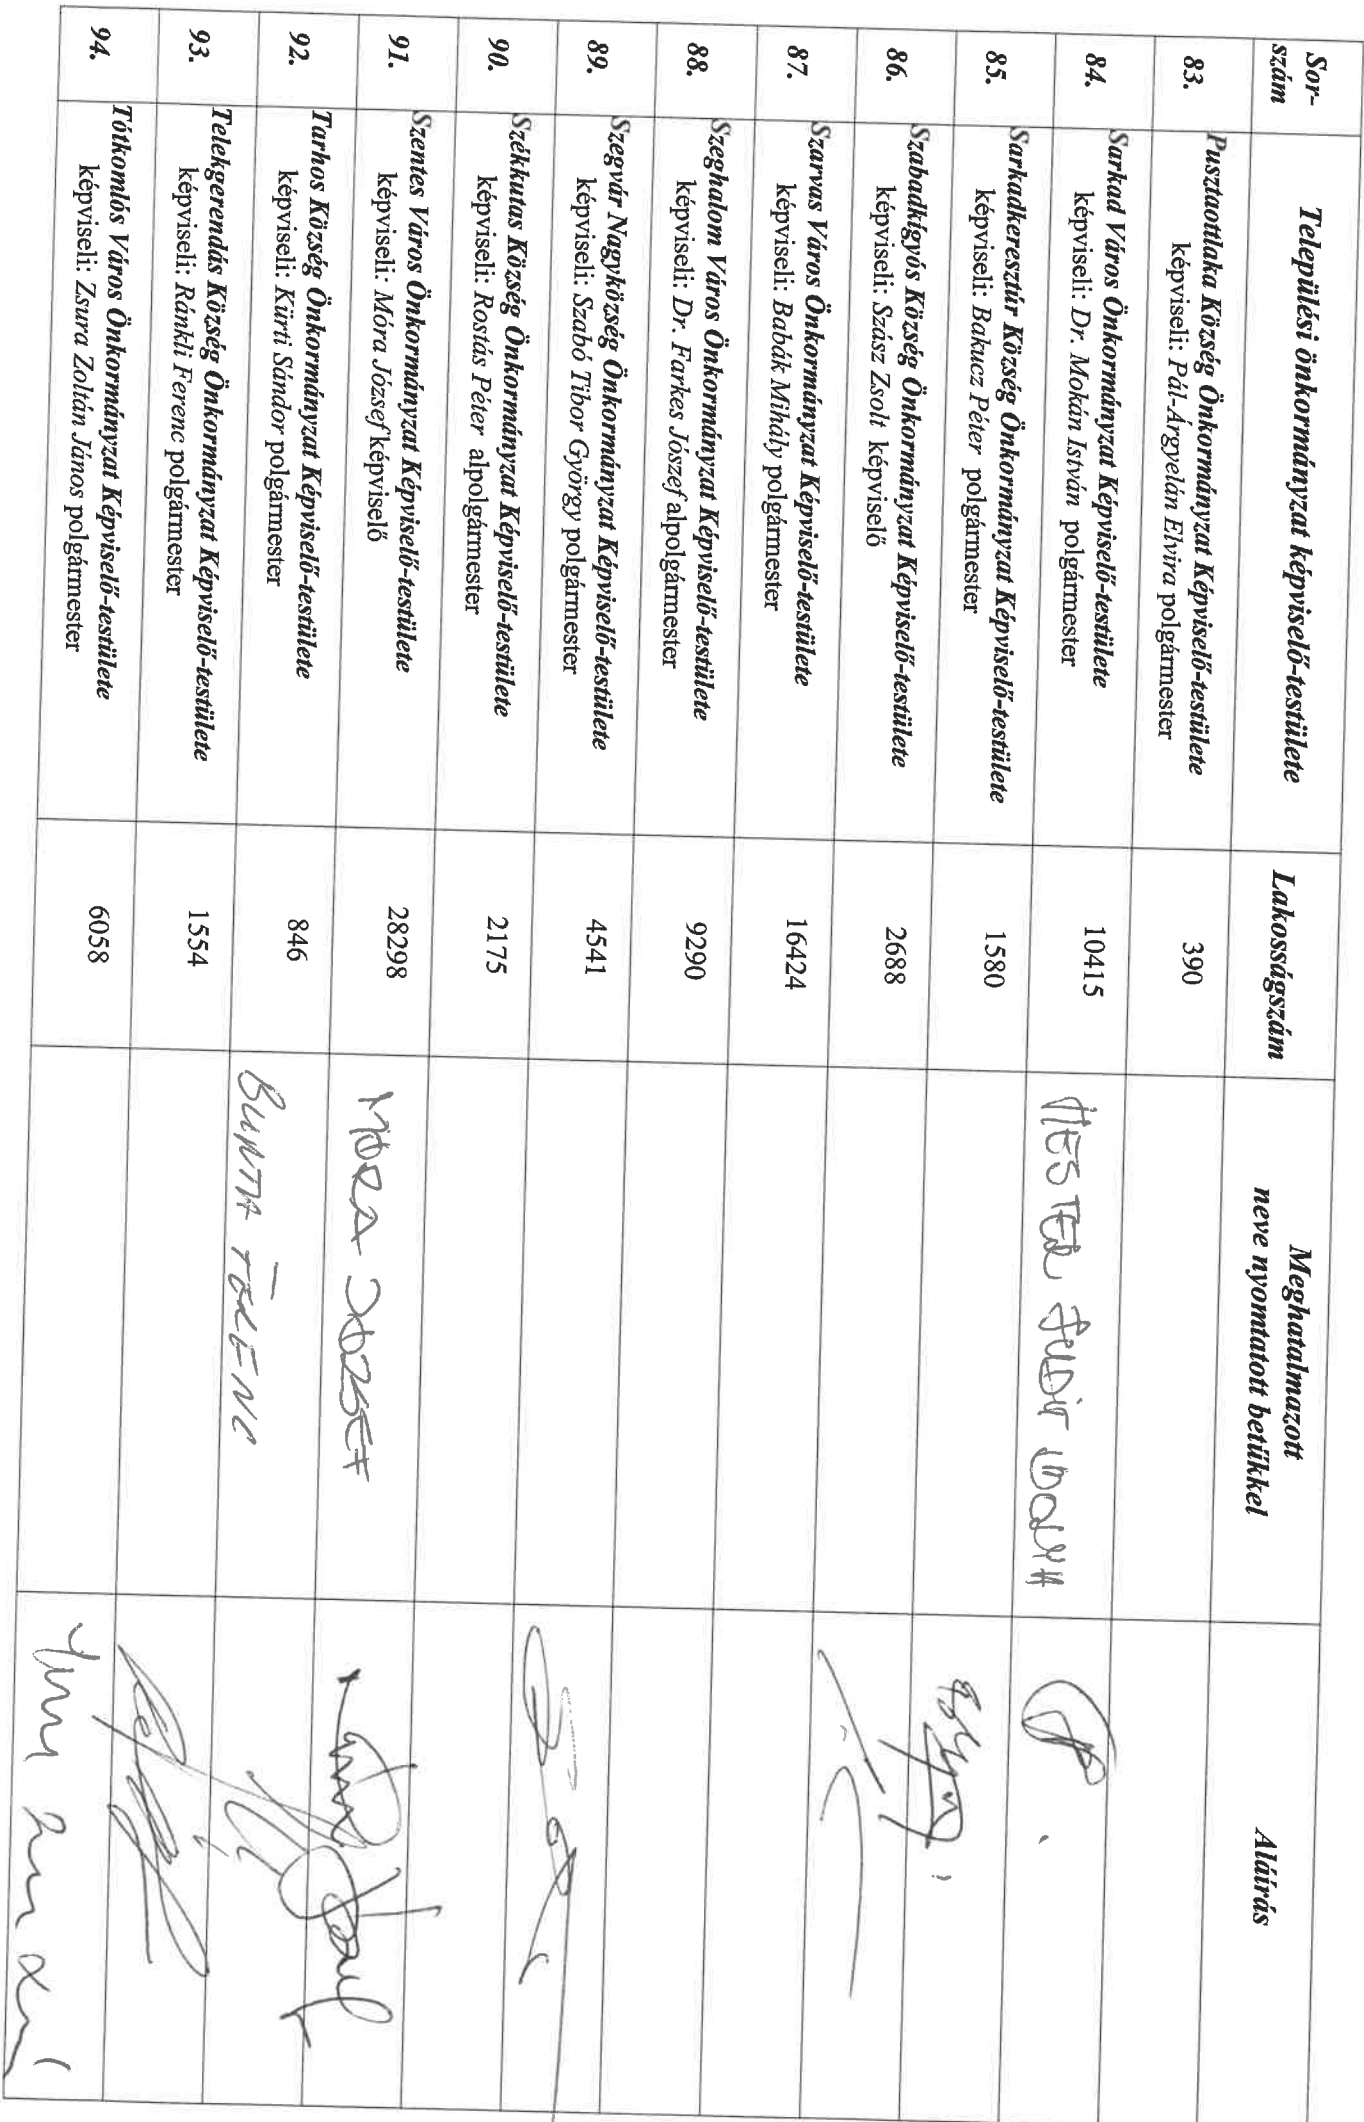 Sor-
szám
Települési önkormányzat képviselő-testülete
Lakosságszám
Meghatalmazott
neve nyomtatott betűkkel
Aláírás
83.
Pusztaottlaka Község Önkormányzat Képviselő-testülete
képviseli: Pál-Árgyelán Elvira polgármester
390
84.
Sarkad Város Önkormányzat Képviselő-testülete
képviseli: Dr. Mokán István polgármester
10415
MESTER JUDIT
85.
Sarkadkeresztúr Község Önkormányzat Képviselő-testülete
képviseli: Bakucz Péter polgármester
1580
86.
Szabadkígyós Község Önkormányzat Képviselő-testülete
képviseli: Szász Zsolt képviselő
2688
87.
Szarvas Város Önkormányzat Képviselő-testülete
képviseli: Babák Mihály polgármester
16424
88.
Szeghalom Város Önkormányzat Képviselő-testülete
képviseli: Dr. Farkes József alpolgármester
9290
89.
Szegvár Nagyközség Önkormányzat Képviselő-testülete
képviseli: Szabó Tibor György polgármester
4541
90.
Székkutas Község Önkormányzat Képviselő-testülete
képviseli: Rostás Péter alpolgármester
2175
91.
Szentes Város Önkormányzat Képviselő-testülete
képviseli: Móra József képviselő
28298
MÓRA JÓZSEF
92.
Tarhos Község Önkormányzat Képviselő-testülete
képviseli: Kürti Sándor polgármester
846
BUNTA FERENC
93.
Telekgerendás Község Önkormányzat Képviselő-testülete
képviseli: Ránkli Ferenc polgármester
1554
94.
Tótkomlós Város Önkormányzat Képviselő-testülete
képviseli: Zsura Zoltán János polgármester
6058